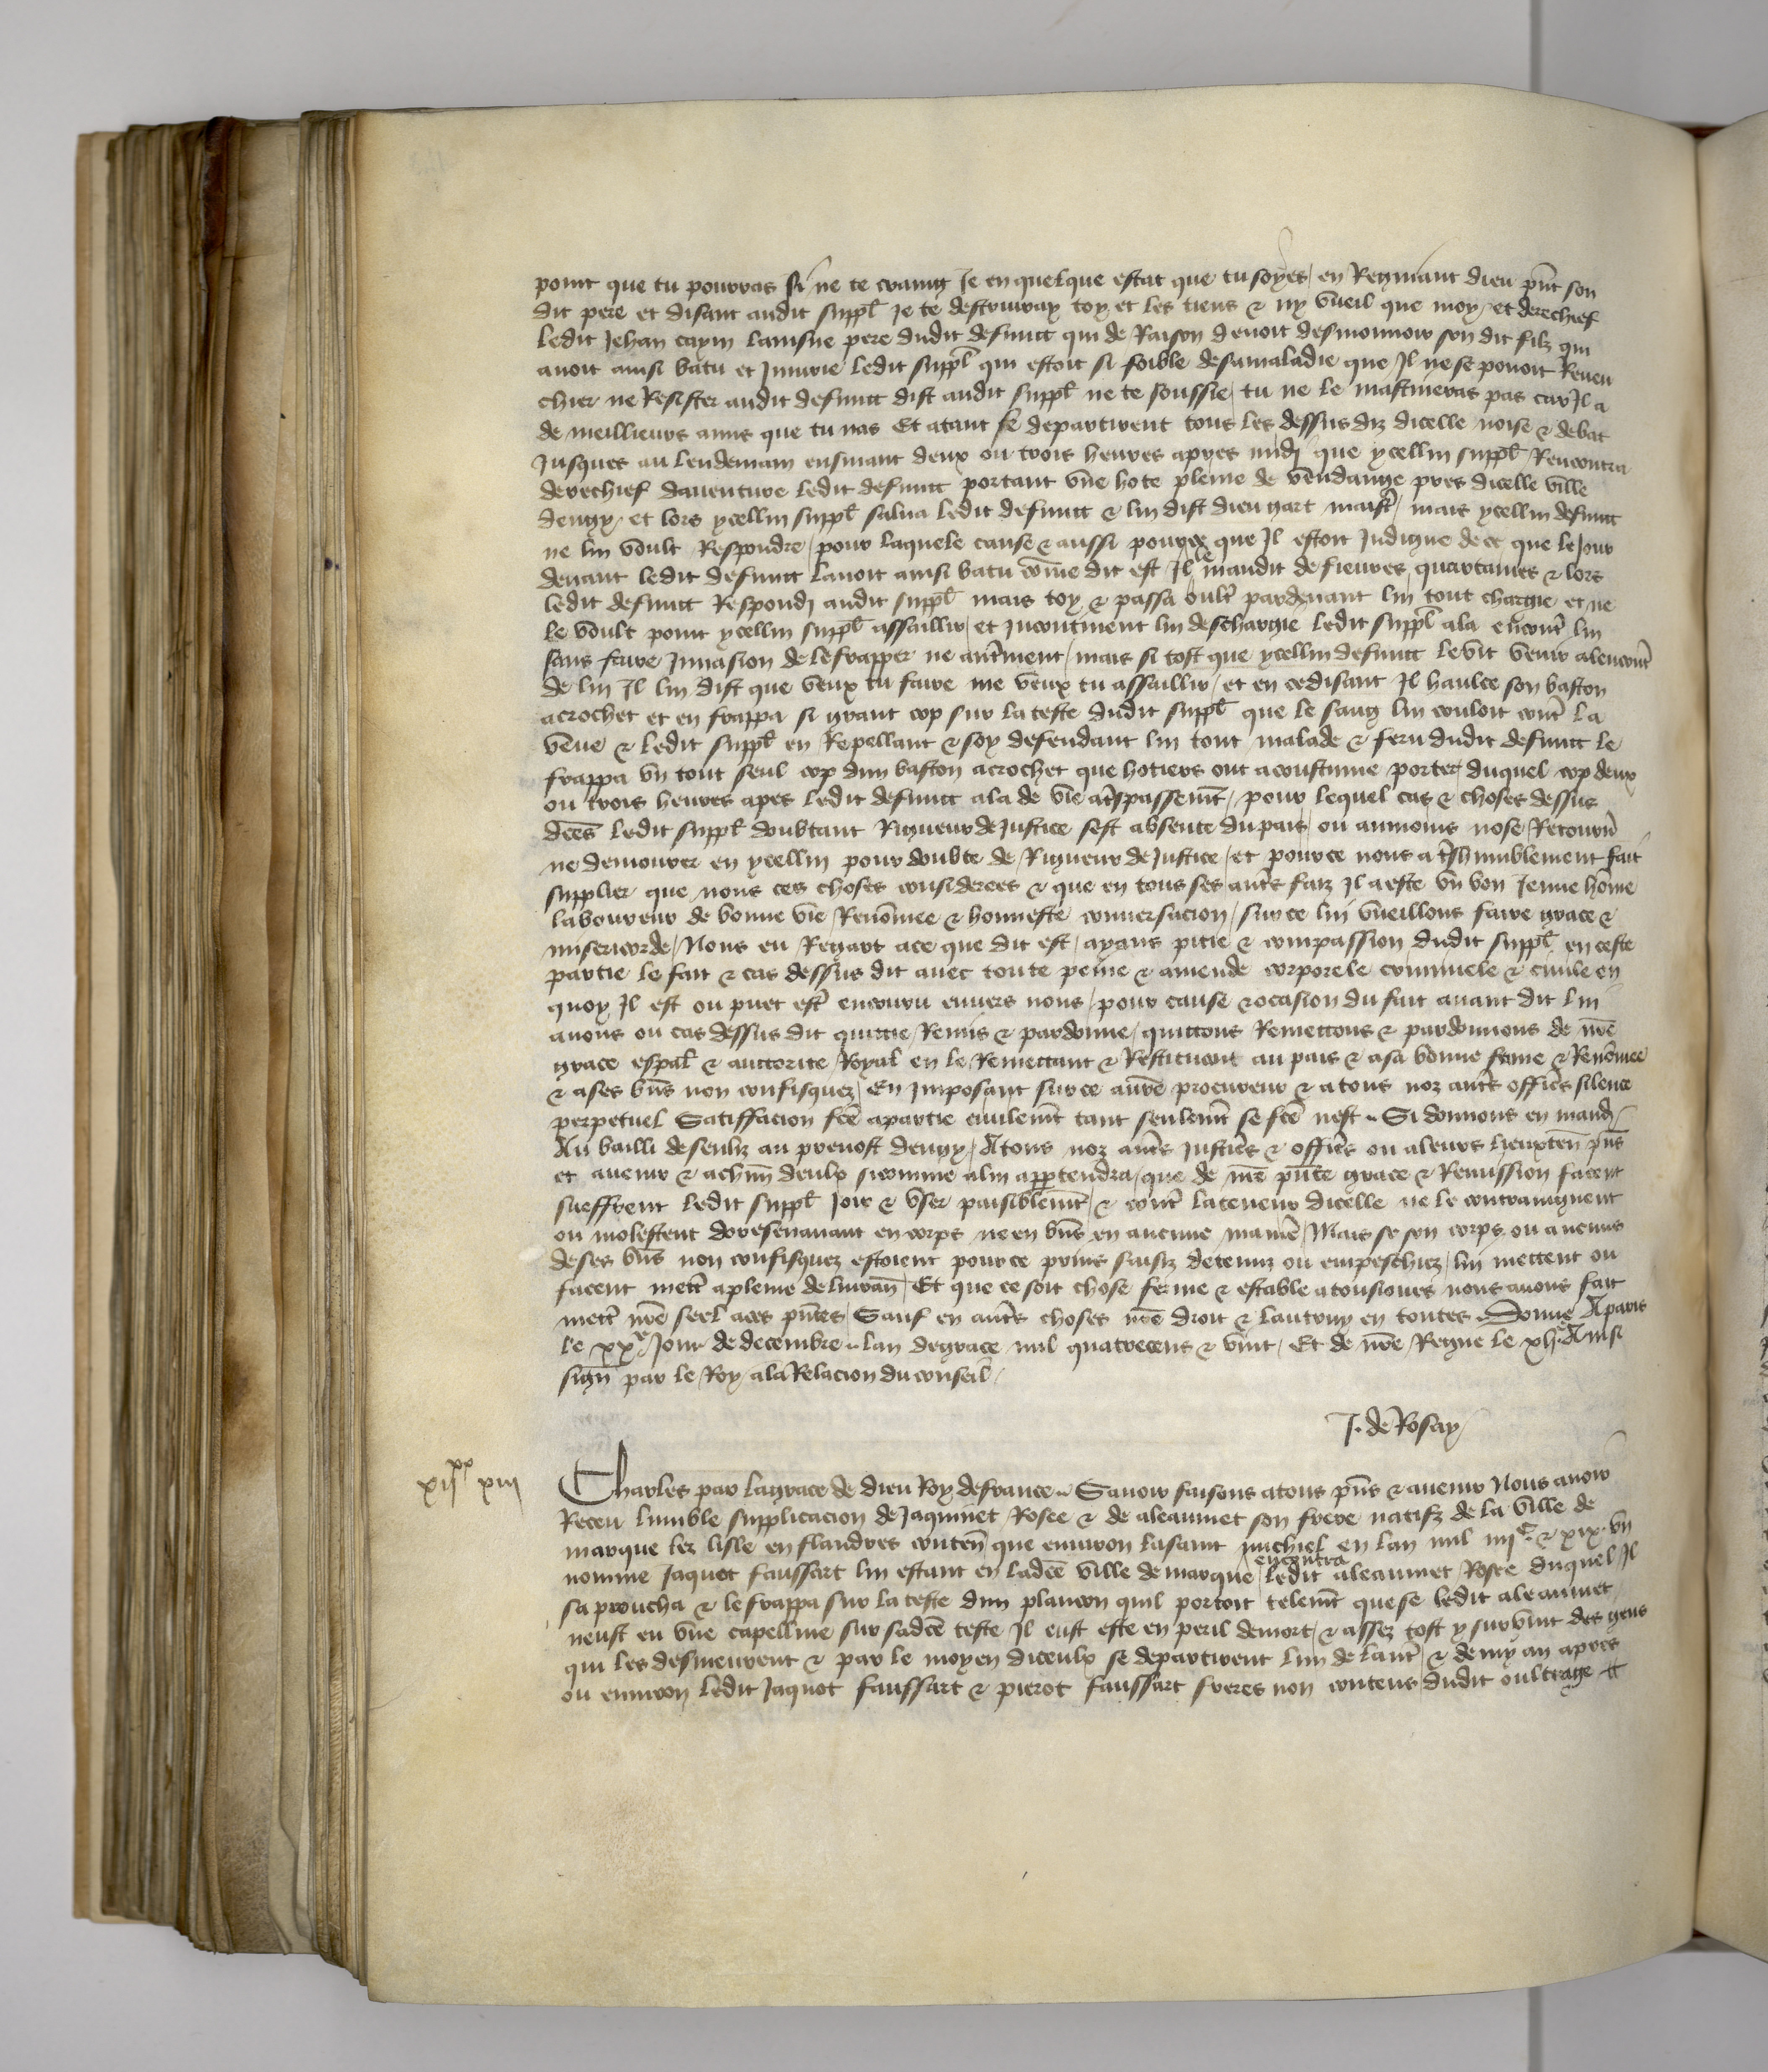 point que tu pourras si ne te craing Je en quelque estat que tu soyes / en Regniant dieu pn̄t son
dit pere et disant audit suppl̄ Je te destruiray toy et les tiens & ny vueil que moy / et derechief
ledit Jehan cayin laisne pere dudit defunct qui de Raison devoit desmouvoir son dit filz qui
avoit ainsi batu et Iniurie ledit suppl̄ qui estoit si foible de sa maladie que Il ne se povoit Reven
chier ne Resister audit defunct dist audit suppl̄ ne te soussie / tu ne le mastineras pas car Il a
de meillieurs amis que tu nas Et atant se departirent tous les dessus diz dicelle noise & debat
Jusques au lendemain ensuiant deux ou trois heures apres midj que ycellui suppl̄ Rencontra
derechief daventure ledit defunct portant vne hote pleine de vendange pres dicelle ville
dengy / et lors ycellui suppl̄ salua ledit defunct & lui dist dieu gart maist̄ / mais ycellui defunct
ne lui voult Respondre / pour laquele cause & aussi pource que Il estoit Indigne de ce que le Jour
devant ledit defunct lavoit ainsi batu cōme dit est / Il le maudit de fievres quartaines & lors
ledit defunct Respondj audit suppl̄ mais toy & passa oult̄ pardevant lui tout chargie et ne
le voult point ycellui suppl̄ assaillir / et Incontinent lui deschargie ledit suppl̄ ala encont̄ lui
sans faire Invasion de le frapper ne aut̄ment / mais si tost que ycellui defunct le vit venir alencont̄
de lui Il lui dist que veux tu faire me veux tu assaillir / et en ce disant Il haulce son baston
acrochet et en frappa si grant cop sur la teste dudit suppl̄ que le sang lui couloit cont̄ la
veue & ledit suppl̄ en Repellant & soy defendant lui tout malade & feru dudit defunct le
frappa vn tout seul cop dun baston acrochet que hotiers ont acoustume porter / duquel cop deux
ou trois heures apes ledit defunct ala de vie at̄spassem̄t / pour lequel cas & choses dessus
dc̄es ledit suppl̄ doubtant Rigueur de Justice sest absente du pais / ou aumoins nose Retourn̄
ne demourer en ycellui pour doubte de Rigueur de Justice / et pource nous a t̄shumblement fait
supplier que nous ces choses considerees & que en tous ses aut̄s faiz Il a este vn bon Jeune hōme
laboureur de bonne vie Renōmee & honneste conversacion / sur ce lui vueillons faire grace &
misericorde / Nous eu Regart ace que dit est / ayans pitie & compassion dudit suppl̄ en ceste
partie le fait & cas dessus dit avec toute peine & amende corporele criminele & civile en
quoy Il est ou puet est̄ encouru envers nous / pour cause & ocasion du fait avant dit lui
avons ou cas dessus dit quictie / Remis & pardonne / quictons Remettons & pardonnons de nr̄e
grace espāl & auctorite Royal en le Remettant & Restituant au pais & asa bonne fame & Renōmee
& ases bn̄s non confisquez / En Imposant sur ce anr̄e procureur & atous noz aut̄s officīs silence
perpetuel Satiffacion fc̄e apartie civilem̄t tant seulem̄t se fc̄e nest Si donnons en mand̄ /
Au bailli de senliz au prevost dengy / Atous noz aut̄s Justicīs & officīs ou aleurs lieuxten̄ pn̄s
et avenir & achūn deulx sicomme alui appartendra / que de nr̄e pn̄te grace & Remission facent
sueffrent ledit suppl̄ Joir & vser paisiblem̄t / & cont̄ la teneur dicelle ne le contraingnent
ou molestent doresenavant en corps ne en bn̄s en aucune manīe / Mais se son corps ou aucuns
de ses bn̄s non confisquez estoient pource prins saisiz detenuz ou empeschiez / lui mettent ou
facent mett̄ apleine delivran̄ / Et que ce soit chose ferme & estable atousiours nous avons fait
mett̄ nr̄e seel aces pn̄tes / Sauf en aut̄s choses nr̄e droit & lautruy en toutes Donne Aparis
le xxe Jour de decembre lan de grace mil quatrecens & vint / Et de nr̄e Regne le xlie Ainsi
sign̄ par le Roy / ala Relacion du conseil /
J. de Rosay
xijxx xiij
Charles par la grace de dieu Roy de france Savoir faisons atous pn̄s & avenir Nous avoir
Receu lumble supplicacion de Jaquinet Rosee & de aleaumet son frere natifz de la ville de
marque lez lisle en flandres conten̄ que environ la saint michiel en lan mil iiijc & xix vn
nomme Jaquot faussart lui estant en ladc̄e ville de marque encontra ledit aleaumet Rosee duquel Il
saproucha & le frappa sur la teste dun plancon quil portoit telem̄t que se ledit aleaumet
neust eu vne capelline sur sadc̄e teste Il eust este en peril de mort / & assez tost y survint des gens
qui les desmeurent & par le moyen diceulx se departirent lun de laut̄ / & demy an apres
ou environ ledit Jaquot faussart & pierot faussart freres non contens dudit oultrage